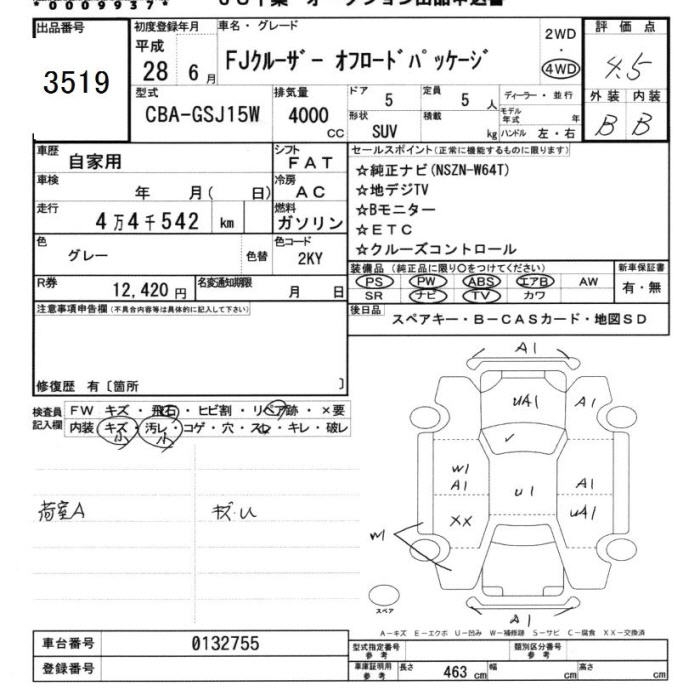 *000997*
出品番号
3519
初度登録年月
平成
28 6 月
車名・グレード
FJクルーザー オフロードパッケージ
2WD
・
4WD
評価点
4.5
外装 内装
B B
型式
CBA-GSJ15W
排気量
4000
CC
ドア
5
定員
5 人
形状
SUV
積載
kg
ディーラー・並行
モデル年式 年
ハンドル 左・右
車歴
自家用
シフト
FAT
車検
年 月( 日)
冷房
AC
走行
4万4千542 km
燃料
ガソリン
色
グレー
色替
色コード
2KY
R券
12,420 円
名変通知期限
月 日
セールスポイント(正常に機能するものに限ります)
☆純正ナビ(NSZN-W64T)
☆地デジTV
☆Bモニター
☆ETC
☆クルーズコントロール
装備品(純正品に限り○をつけてください)
PS PW ABS エアB AW
SR ナビ TV カワ
新車保証書
有・無
後日品
スペアキー・B-CASカード・地図SD
注意事項申告欄(不具合内容等は具体的に記入して下さい)
修復歴 有〔箇所 〕
検査員記入欄
FW キズ・飛石・ヒビ割・リペア跡・×要
内装 キズ・汚レ・コゲ・穴・スレ・キレ・破レ
小 小
荷室A
キズ・U
A1
UA1
A1
W1
A1
U1
A1
XX
UA1
W
スペア
A1
A-キズ E-エクボ U-凹み W-補修跡 S-サビ C-腐食 XX-交換済
車台番号
0132755
登録番号
型式指定番号
参考
類別区分番号
参考
車庫証明用
参考
長さ 463 cm
幅 cm
高さ cm